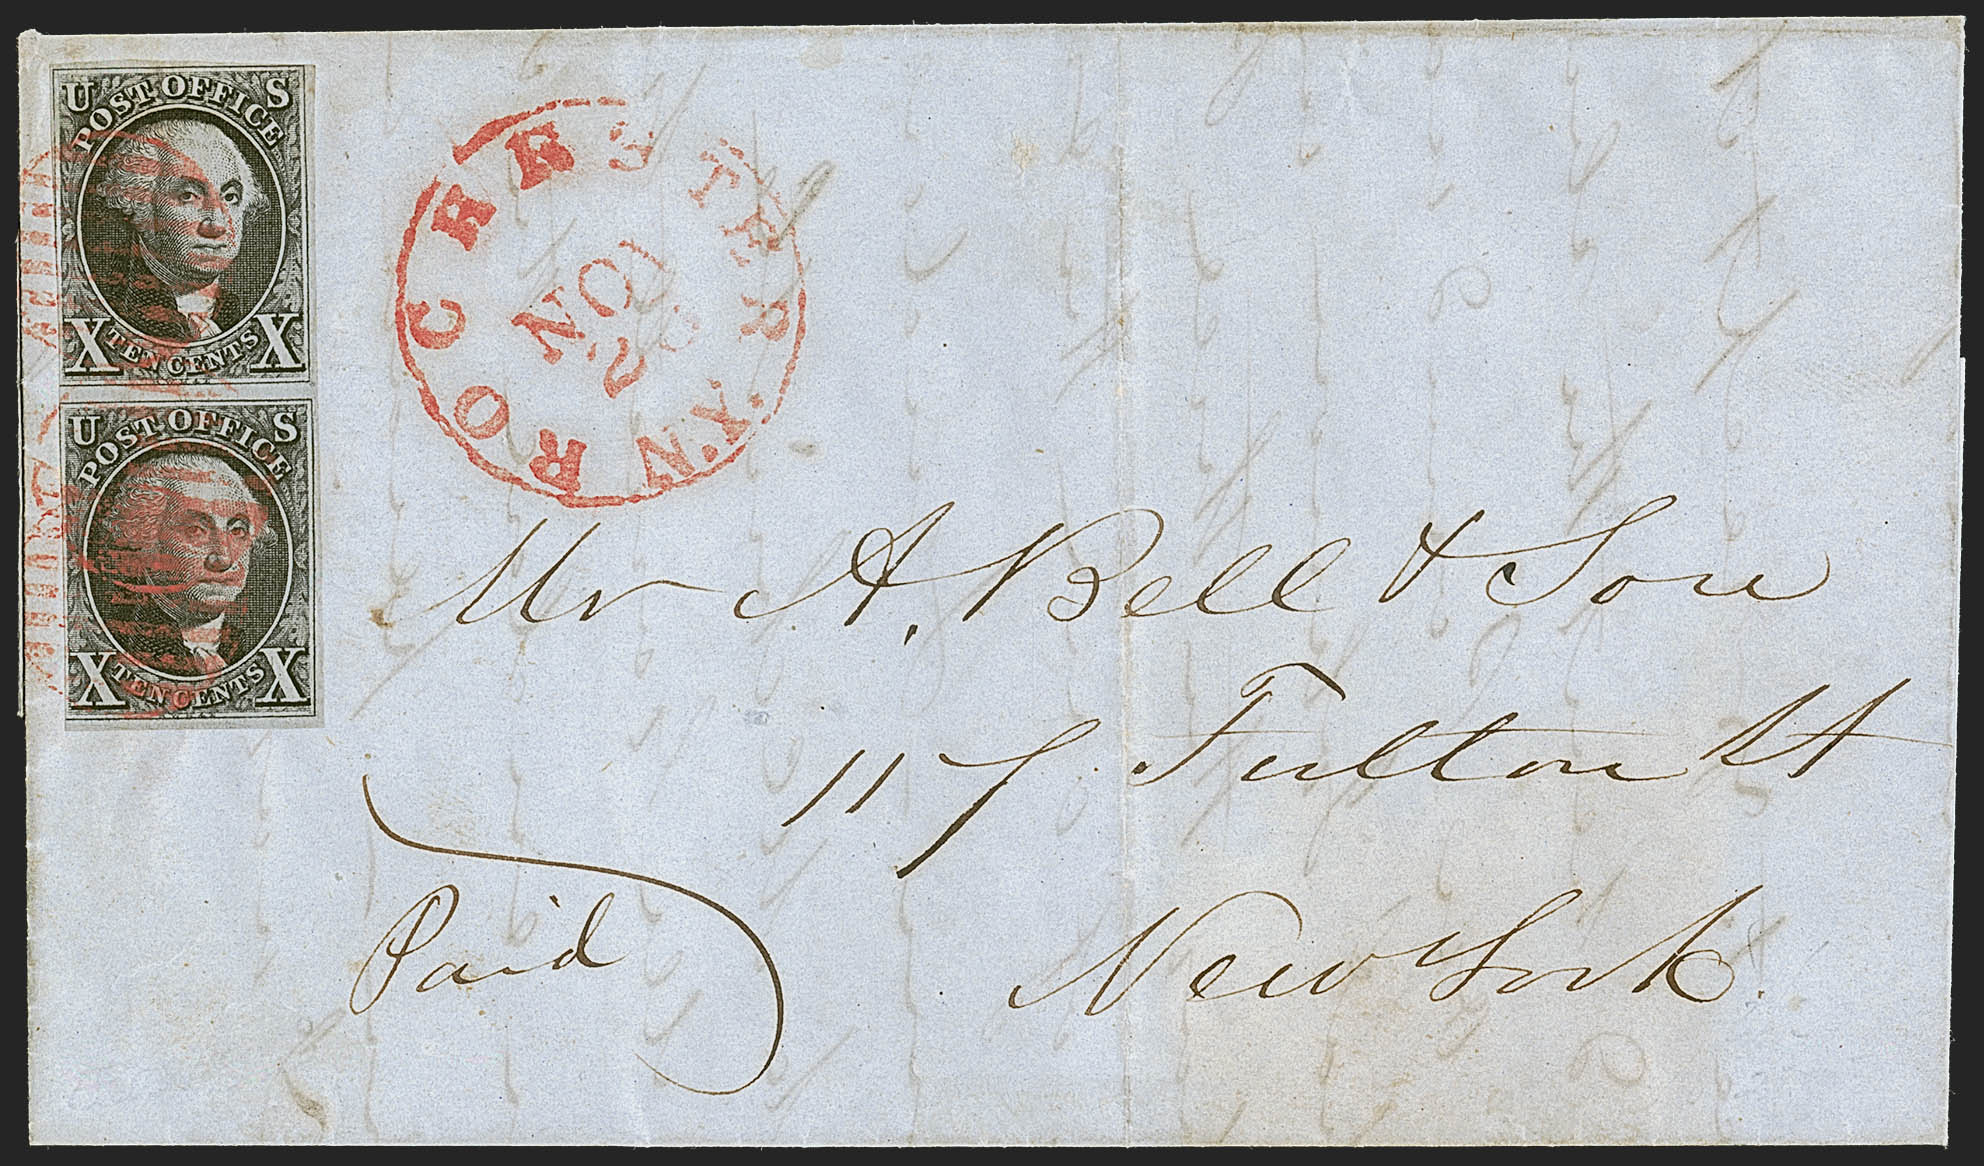 U S
POST OFFICE
X TEN CENTS X
U S
POST OFFICE
X TEN CENTS X
ROCHESTER N.Y.
NOV
26
Mr A. Bell & Son
117 Fulton St
New York.
Paid